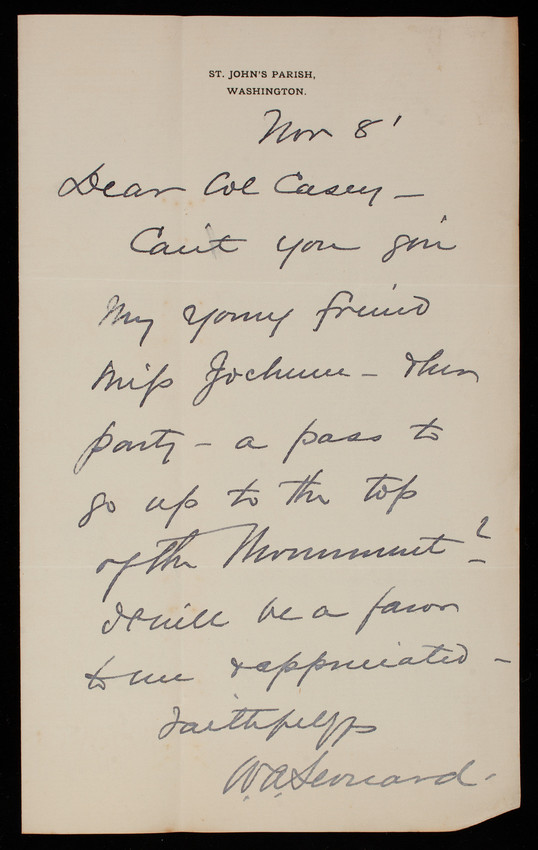 ST. JOHN'S PARISH,
WASHINGTON.
Nov 8'
Dear Col Casey –
Can't you give
my young friend
Miss – & her
party – a pass to
go up to the top
of the Monument?
It will be a favor
to me & appreciated –
Faithfully yrs
W. A. Leonard.